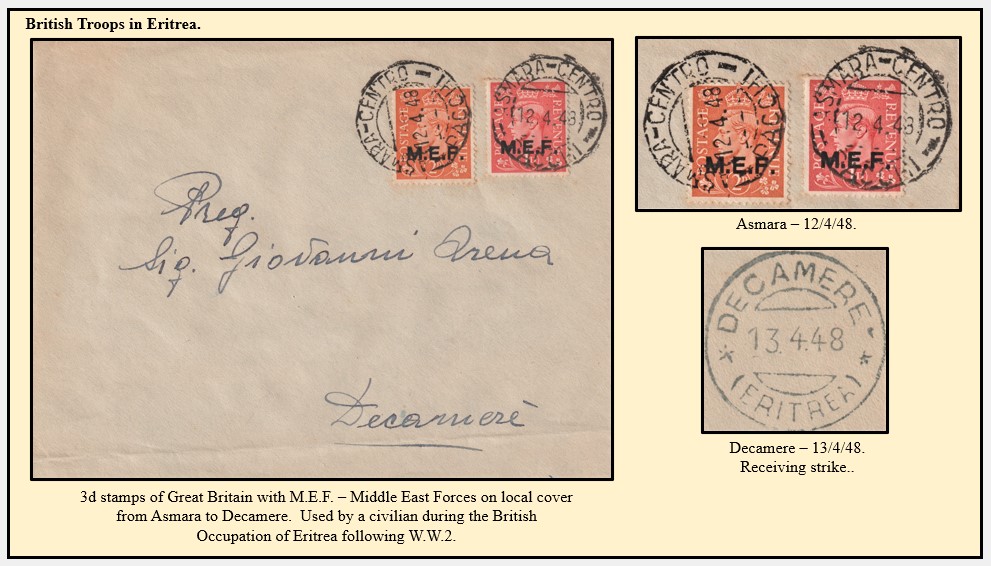 British Troops in Eritrea.
ASMARA-CENTRO
12.4.48
POSTAGE
M.E.F.
ASMARA-CENTRO
12.4.48
M.E.F.
Preg.
Sig. Giovanni Arena
Decamerè
3d stamps of Great Britain with M.E.F. – Middle East Forces on local cover
from Asmara to Decamere. Used by a civilian during the British
Occupation of Eritrea following W.W.2.
ASMARA-CENTRO
12.4.48
POSTAGE
M.E.F.
ASMARA-CENTRO
12.4.48
REVENUE
M.E.F.
Asmara – 12/4/48.
DECAMERE
13.4.48
(ERITREA)
Decamere – 13/4/48.
Receiving strike..